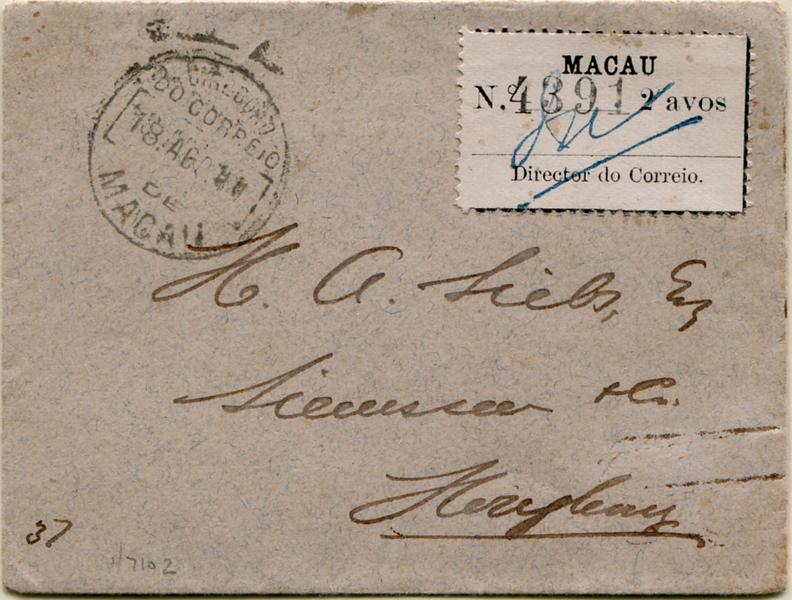 MACAU
N.º 4391 2 avos
Director do Correio.
DO CORREIO
18 AGO
DE
MACAU
H. A. Siebs, Esq
Siemssen & Co.
Hongkong
37
117102